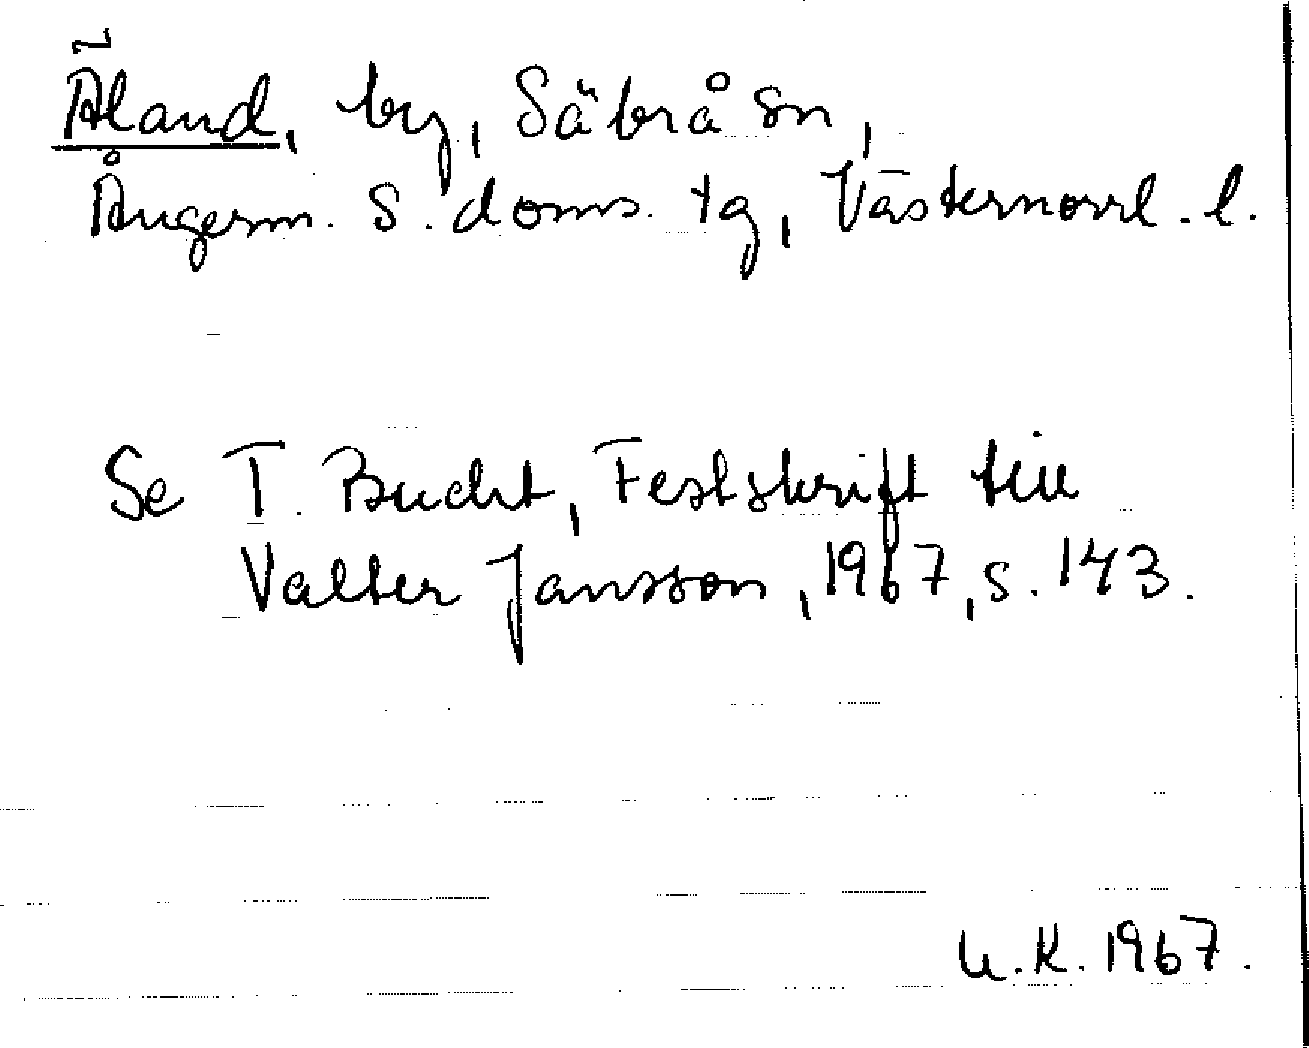 Äland, by, Säbrå sn,
Ångerm. s. doms. tg, Västernorrl. l.
Se T. Bucht, Festskrift till
Valter Jansson, 1967, s. 143.
U.K. 1967.